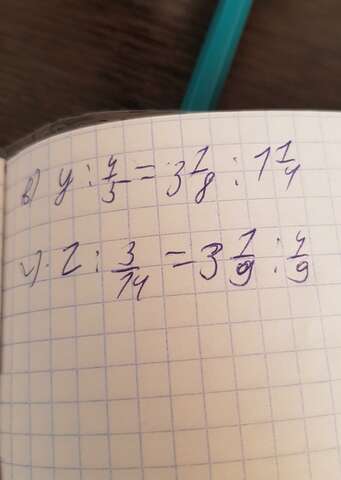 в) y : 4/5 = 3 1/8 : 1 1/4
г) z : 3/14 = 3 1/9 : 4/9